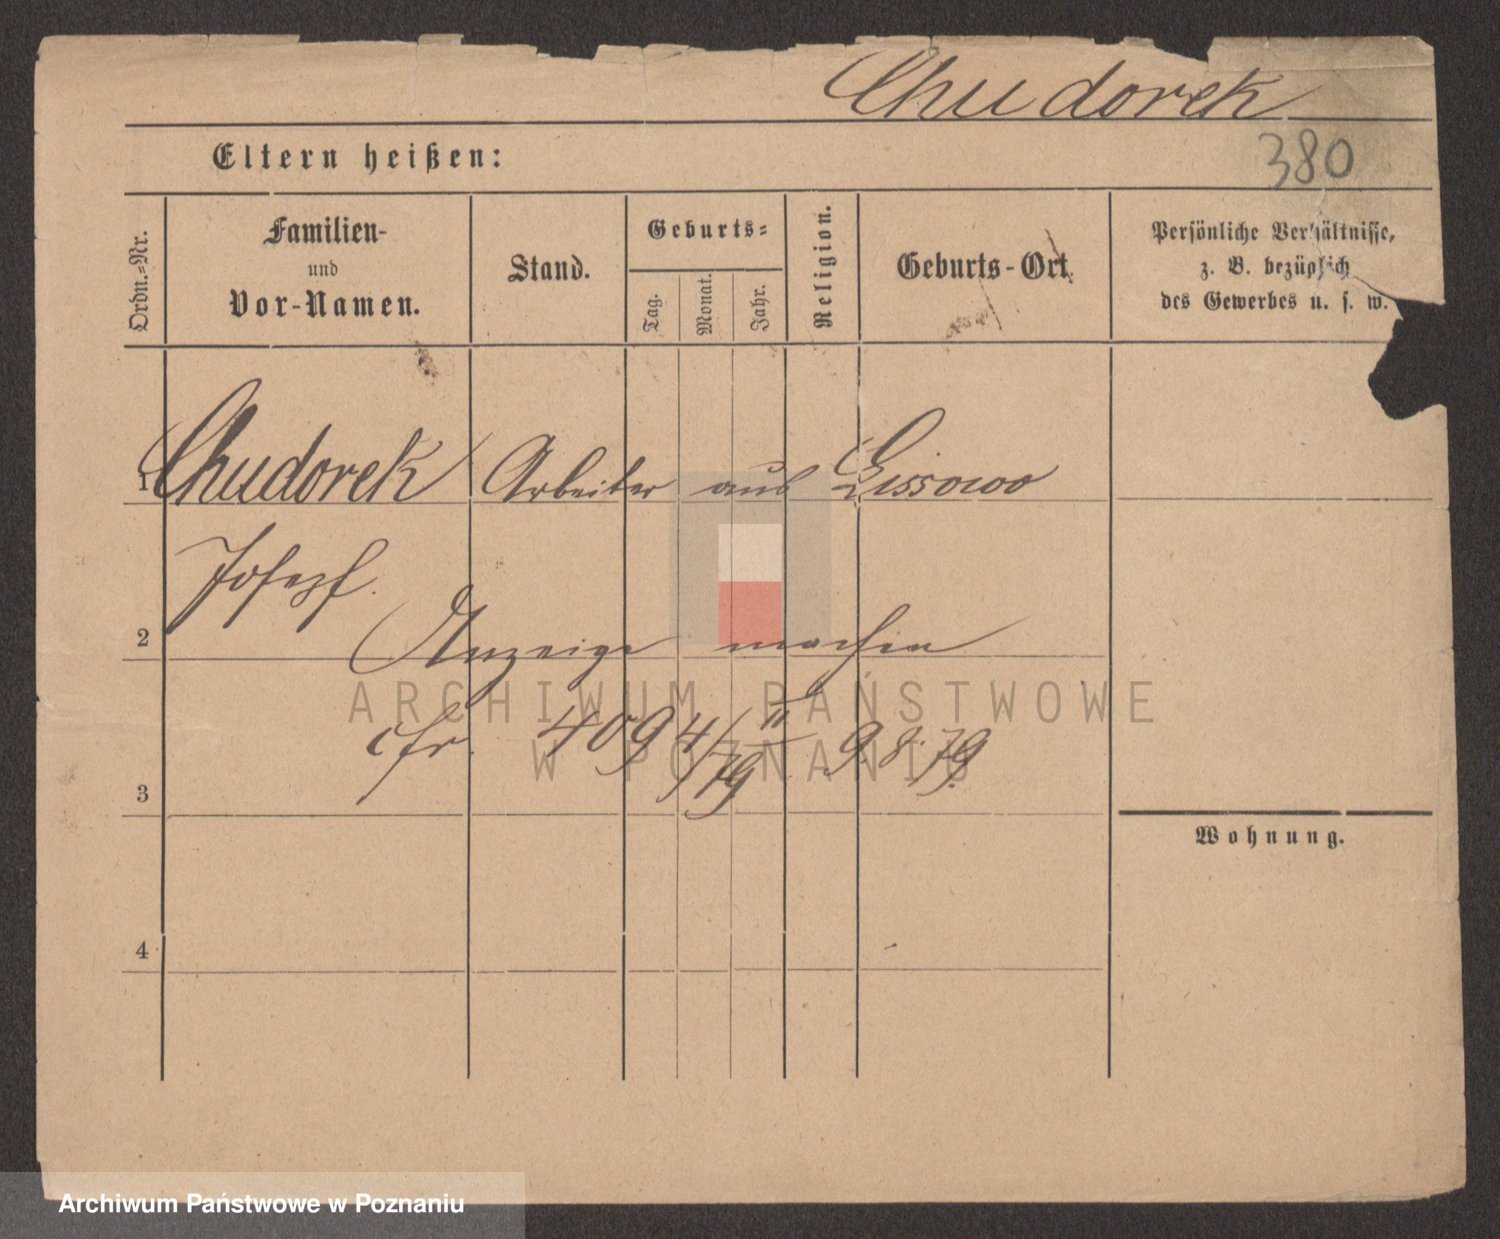 Chudorek
Eltern heißen:
380
Ordn.-Nr.
Familien-
und
Vor-Namen.
Stand.
Geburts-
Tag.
Monat.
Jahr.
Religion.
Geburts-Ort
Persönliche Verhältnisse,
z. B. bezüglich
des Gewerbes u. s. w.
1 Chudorek Arbeiter aus Lissowo
Josef.
2 Anzeige machen
ARCHIWUM PAŃSTWOWE
W POZNANIU
cfr. 4094/79 II 9.8.79.
3
Wohnung.
4
Archiwum Państwowe w Poznaniu